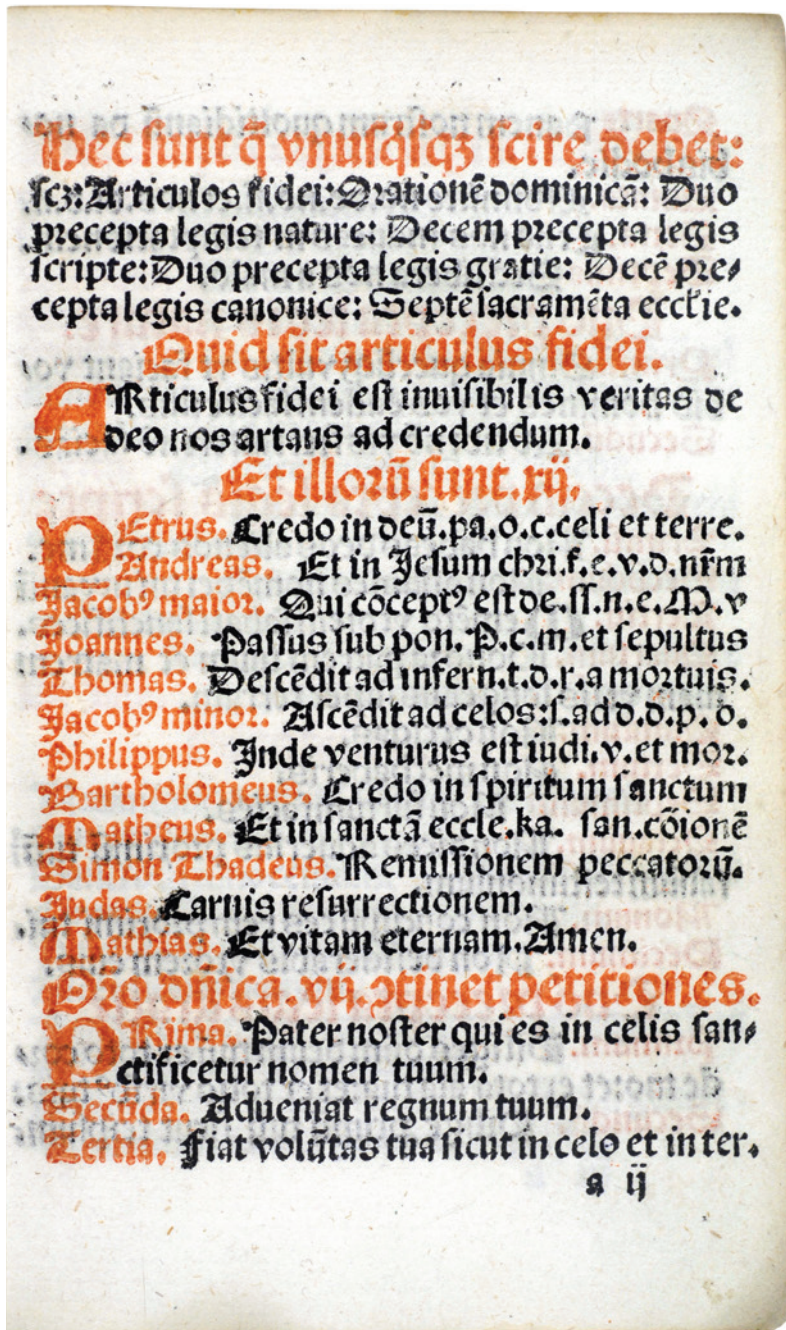 Hec sunt q̄ vnusq̇sqꝫ scire debet:
scꝫ: Articulos fidei: Orationē dominicā: Duo
precepta legis nature: Decem precepta legis
scripte: Duo precepta legis gratie: Decē pre⸗
cepta legis canonice: Septē sacramēta eccƚie.
Quid sit articulus fidei.
ARticulus fidei est inuisibilis veritas de
deo nos artans ad credendum.
Et illorū sunt. xij.
PEtrus. Credo in deū. pa. o. c. celi et terre.
Andreas. Et in Jesum chri. f. e. v. d. nr̄m
Jacobꝰ maior. Qui cōceptꝰ est de. ss. n. e. M. v
Joannes. Passus sub pon. P. c. m. et sepultus
Thomas. Descēdit ad infern. t. d. r. a mortuis.
Jacobꝰ minor. Ascēdit ad celos: s. ad d. d. p. o.
Philippus. Inde venturus est iudi. v. et mor.
Bartholomeus. Credo in spiritum sanctum
Matheus. Et in sanctā eccle. ka. san. cōionē
Simon Thadeus. Remissionem peccatorū.
Judas. Carnis resurrectionem.
Mathias. Et vitam eternam. Amen.
Oro dn̄ica. vij. ↄtinet petitiones.
PRima. Pater noster qui es in celis san⸗
ctificetur nomen tuum.
Secūda. Adueniat regnum tuum.
Tertia. Fiat volūtas tua sicut in celo et in ter.
a ij